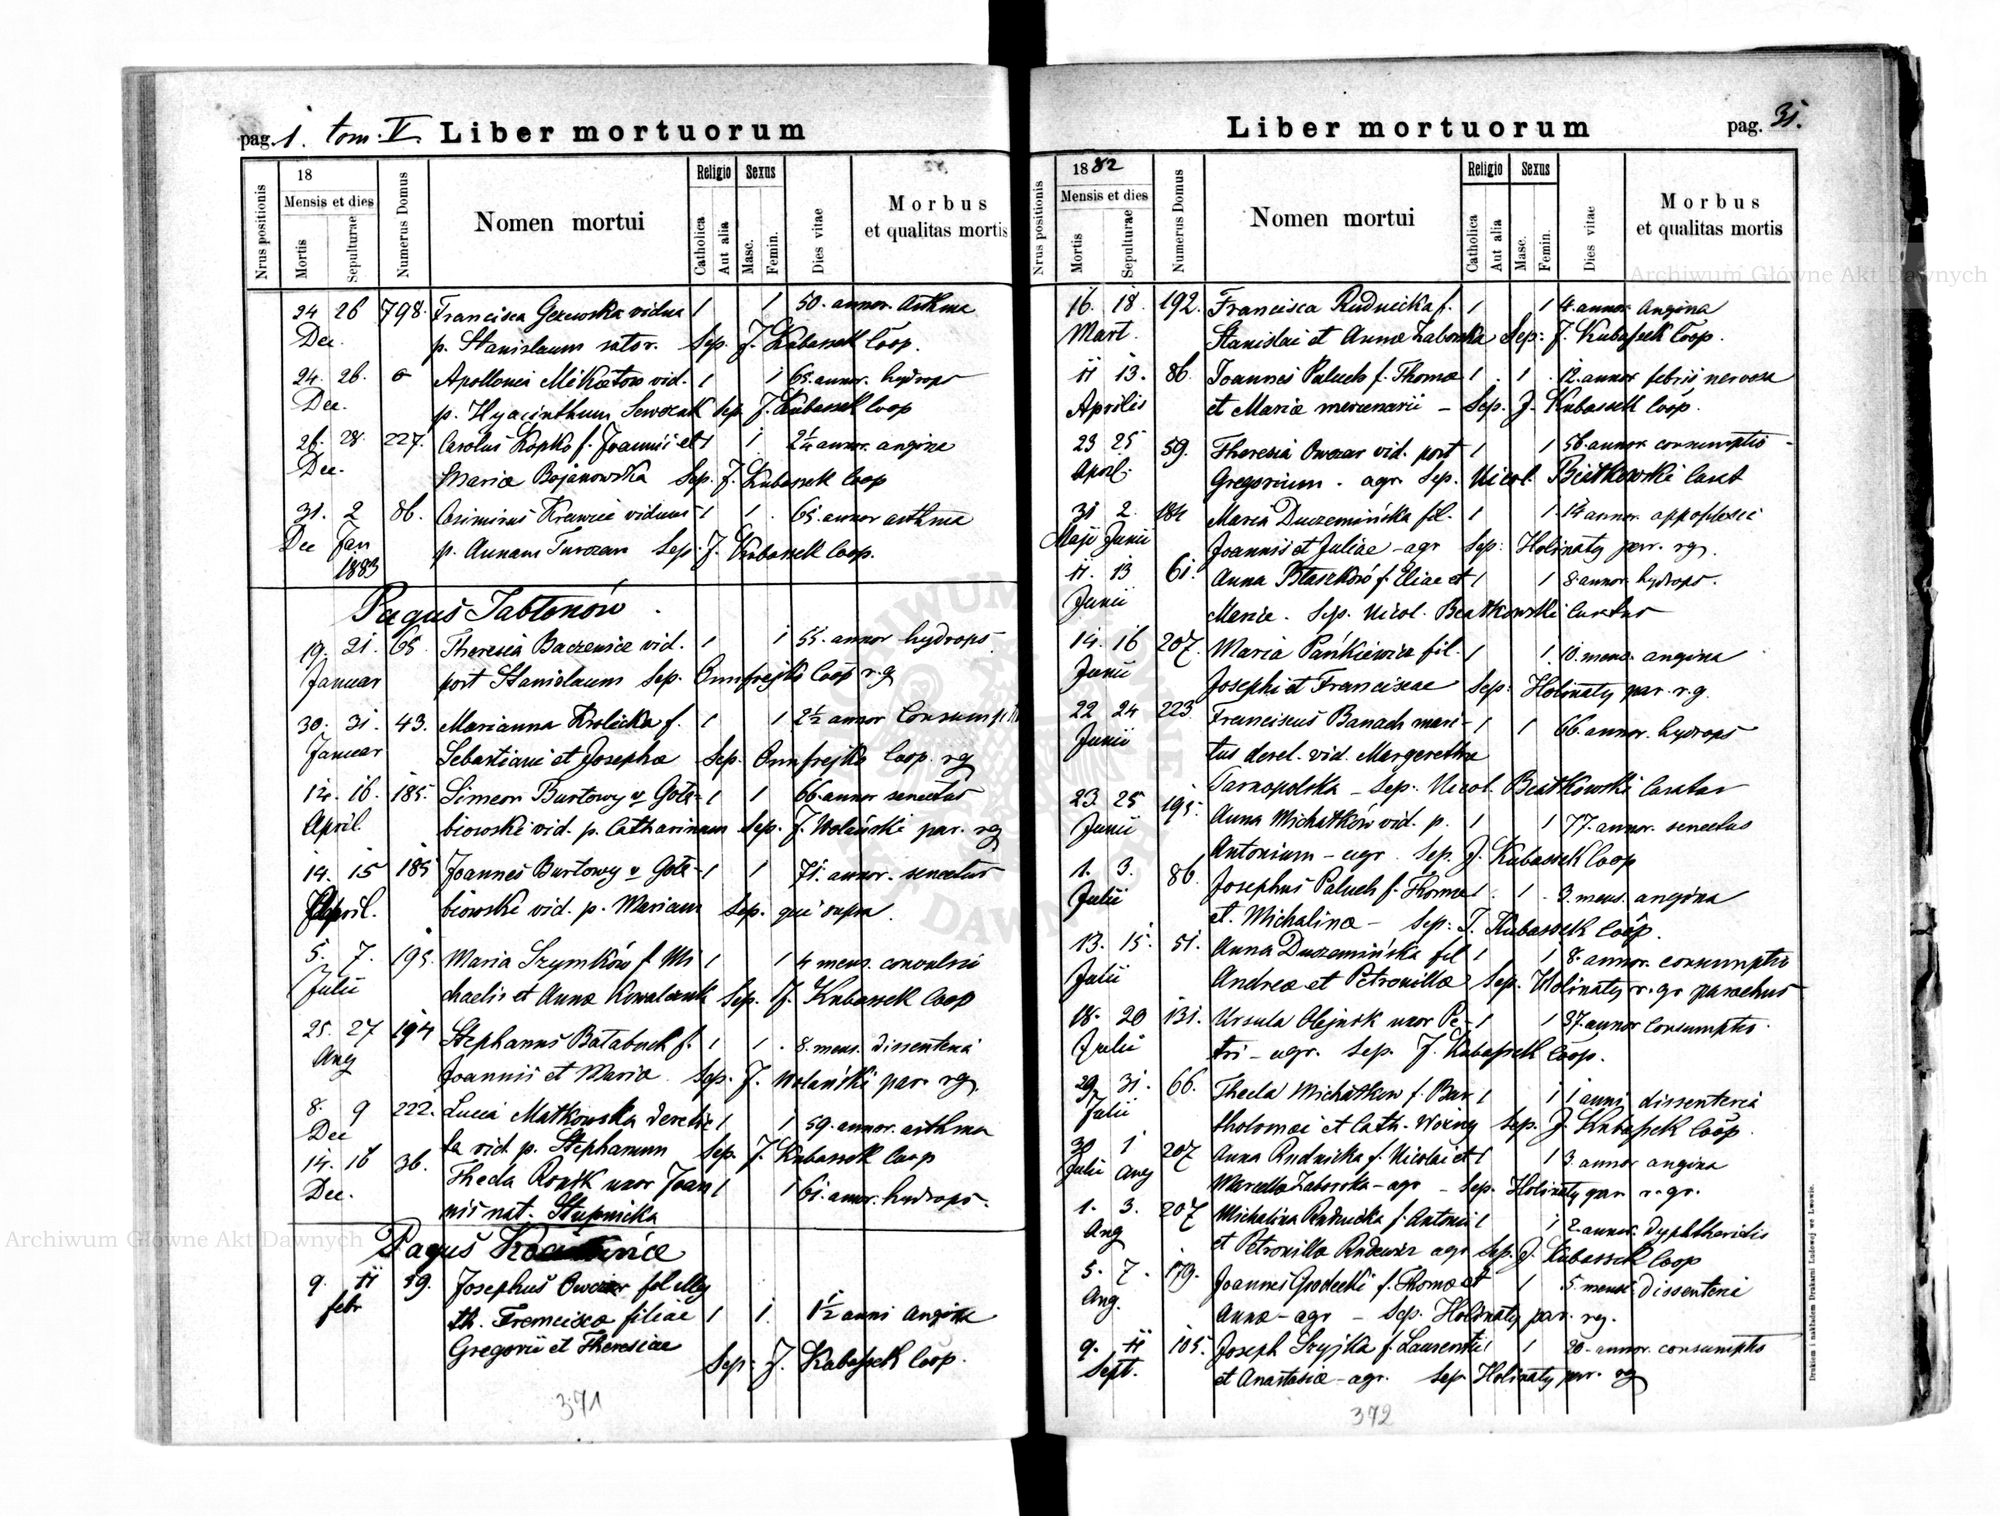 pag. 1. tom. V. Liber mortuorum
Nrus positionis
18
Mensis et dies
Mortis
Sepulturae
Numerus Domus
Nomen mortui
Religio
Catholica
Aut alia
Sexus
Masc.
Femin.
Dies vitae
Morbus
et qualitas mortis
24 26 798. Francisca vidua 1 1 50. annor. asthma
Dec. p. Stanislaum sator. Sep. J. Kubassek Coop.
24. 26. 0 Apollonia vid. 1 1 65. annor. hydrops
Dec. p. Hyacinthum Sep. J. Kubassek Coop
26. 28. 227. Carolus Kopko f. Joannis et 1 1 2 1/4 annor. angina
Dec. Mariæ Bojanowska Sep. J. Kubassek Coop
31. 2 86. Casimirus Krawiec viduus 1 1 65 annor asthma
Dec Jan p. Annam Sep. J. Kubassek Coop.
1883
Pagus Jabłonów.
19. 21. 65. Theresia Baczewicz vid. 1 1 55. annor hydrops
Januar post Stanislaum Sep. Onufrejko Coop r. g
30. 31. 43. Marianna Krolicka f. 1 1 2 1/2 annor
Januar Sebastiani et Josephæ Sep. Onufrejko Coop. rg
14. 16. 185. Simeon Burtowy v Gołę- 1 1 66. annor senectus
April. biowski vid. p. Catharinam Sep. J. Wolański par. rg
14. 15 185 Joannes Burtowy v Gołę- 1 1 71. annor. senectus
April. biowski vid. p. Mariam Sep. qui supra.
5. 7. 195. Maria Szymków f. Mi 1 1 4 mens. convulsii
Julii chaelis et Annæ Kowalczuk Sep. J. Kubassek Coop
25. 27 194 Stephanus Bałabuch f. 1 1. 8. mens. dissenteria
Aug Joannis et Mariæ. Sep. J. Wolański par. rg.
8. 9 222. Lucia Matkowska derelic 1 1 59. annor. asthma
Dec ta vid. p. Stephanum Sep. J. Kubassek Coop
14. 16 36. Thecla uxor Joan 1 1 61. annor. hydrops.
Dec. nis nat. Stupnicka
Pagus
9. 11 59. Josephus Owczar fil illeg
febr th. Franciscæ filiae 1 1. 1 1/2 anni angina
Gregorii et Theresiae
Sep. J. Kubassek Coop.
371
Liber mortuorum pag. 31.
Nrus positionis
1882
Mensis et dies
Mortis
Sepulturae
Numerus Domus
Nomen mortui
Religio
Catholica
Aut alia
Sexus
Masc.
Femin.
Dies vitae
Morbus
et qualitas mortis
16. 18. 192. Francisca Rudnicka f. 1 1 4. annor. angina
Mart. Stanislai et Annæ Sep: J. Kubassek Coop.
11 13. 86. Joannes Paluch f. Thomæ 1. 1. 12. annor febris nervosa
Aprilis et Mariæ mercenarii – Sep. J. Kubassek Coop.
23 25 59. Theresia Owczar vid. post 1 1 56. annor consumptio
April. Gregorium. agr. Sep. Nicol. Białkowski Curat
31 2. 184 Maria Duczemińska fil. 1 1. 14 annor. appoplexia
Maji Junii Joannis et Juliae – agr Sep: Holinaty par. rg.
11. 13 61. Anna Błaszków f. Eliae et 1 1 8. annor. hydrops.
Junii Mariæ. Sep. Nicol. Białkowski Curatus
14. 16 207. Maria Pańkiewicz fil. 1 1. 10. mens. angina
Junii Josephi et Franciscae Sep: Holinaty par. r. g.
22 24 223. Franciscus Banach mari- 1 1 66. annor. hydrops
Junii tus derel. vid. Margerethæ
Tarnopolska – Sep: Nicol. Białkowski Curatus
23. 25 195. Anna Michałków vid. p. 1 1 77. annor. senectus
Junii Antonium – agr. Sep. J. Kubassek Coop
1. 3. 86. Josephus Paluch f. Thomæ 1. 1. 3. mens. angina
Julii et Michalinæ – Sep: J. Kubassek Coop.
13. 15. 51. Anna Duczemińska fil 1 1 8. annor. consumptio
Julii Andreæ et Petronillæ Sep. Holinaty r. gr parochus
18. 20 131. Ursula Olejnik uxor Pe- 1 1 37. annor consumptio.
Julii tri – agr. Sep. J. Kubassek Coop.
29. 31. 66. Thecla Michałkow f. Bar 1 1 1 anni dissenteria
Julii tholomæi et Cath. Woźny Sep. J. Kubassek Coop.
30 1 207 Anna Rudnicka f. Nicolai et 1 1 3. annor angina
Julii Aug Marcellæ Zaborska – agr – Sep. Holinaty par. r. gr.
1. 3. 207 Michalina Rudnicka f. Antonii 1 1 2. annor. dyphtheritis
Aug et Petronillæ agr Sep. J. Kubassek Coop
5. 7. 179. Joannes Grodecki f. Thomæ et 1 5. mens. dissenteria
Aug. Annæ – agr – Sep. Holinaty par. rg.
9. 11 105. Joseph f. Laurentii 1 1 20. annor. consumptio
Sept. et Anastasiæ – agr. Sep. Holinaty par. rg
372
Drukiem i nakładem Drukarni Ludowej we Lwowie.
Archiwum Główne Akt Dawnych
Archiwum Główne Akt Dawnych